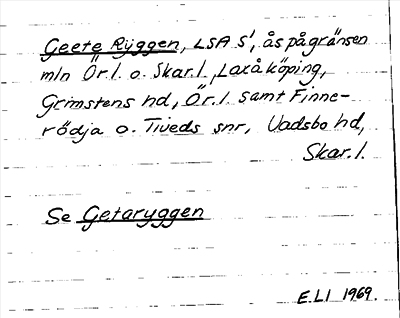 Geete Ryggen, LSA S', ås på gränsen
mln Ör.l. o. Skar.l., Laxå köping,
Grimstens hd, Ör.l. samt Finne-
rödja o. Tiveds snr, Vadsbo hd,
Skar.l.
Se Getaryggen
E.LI 1969.